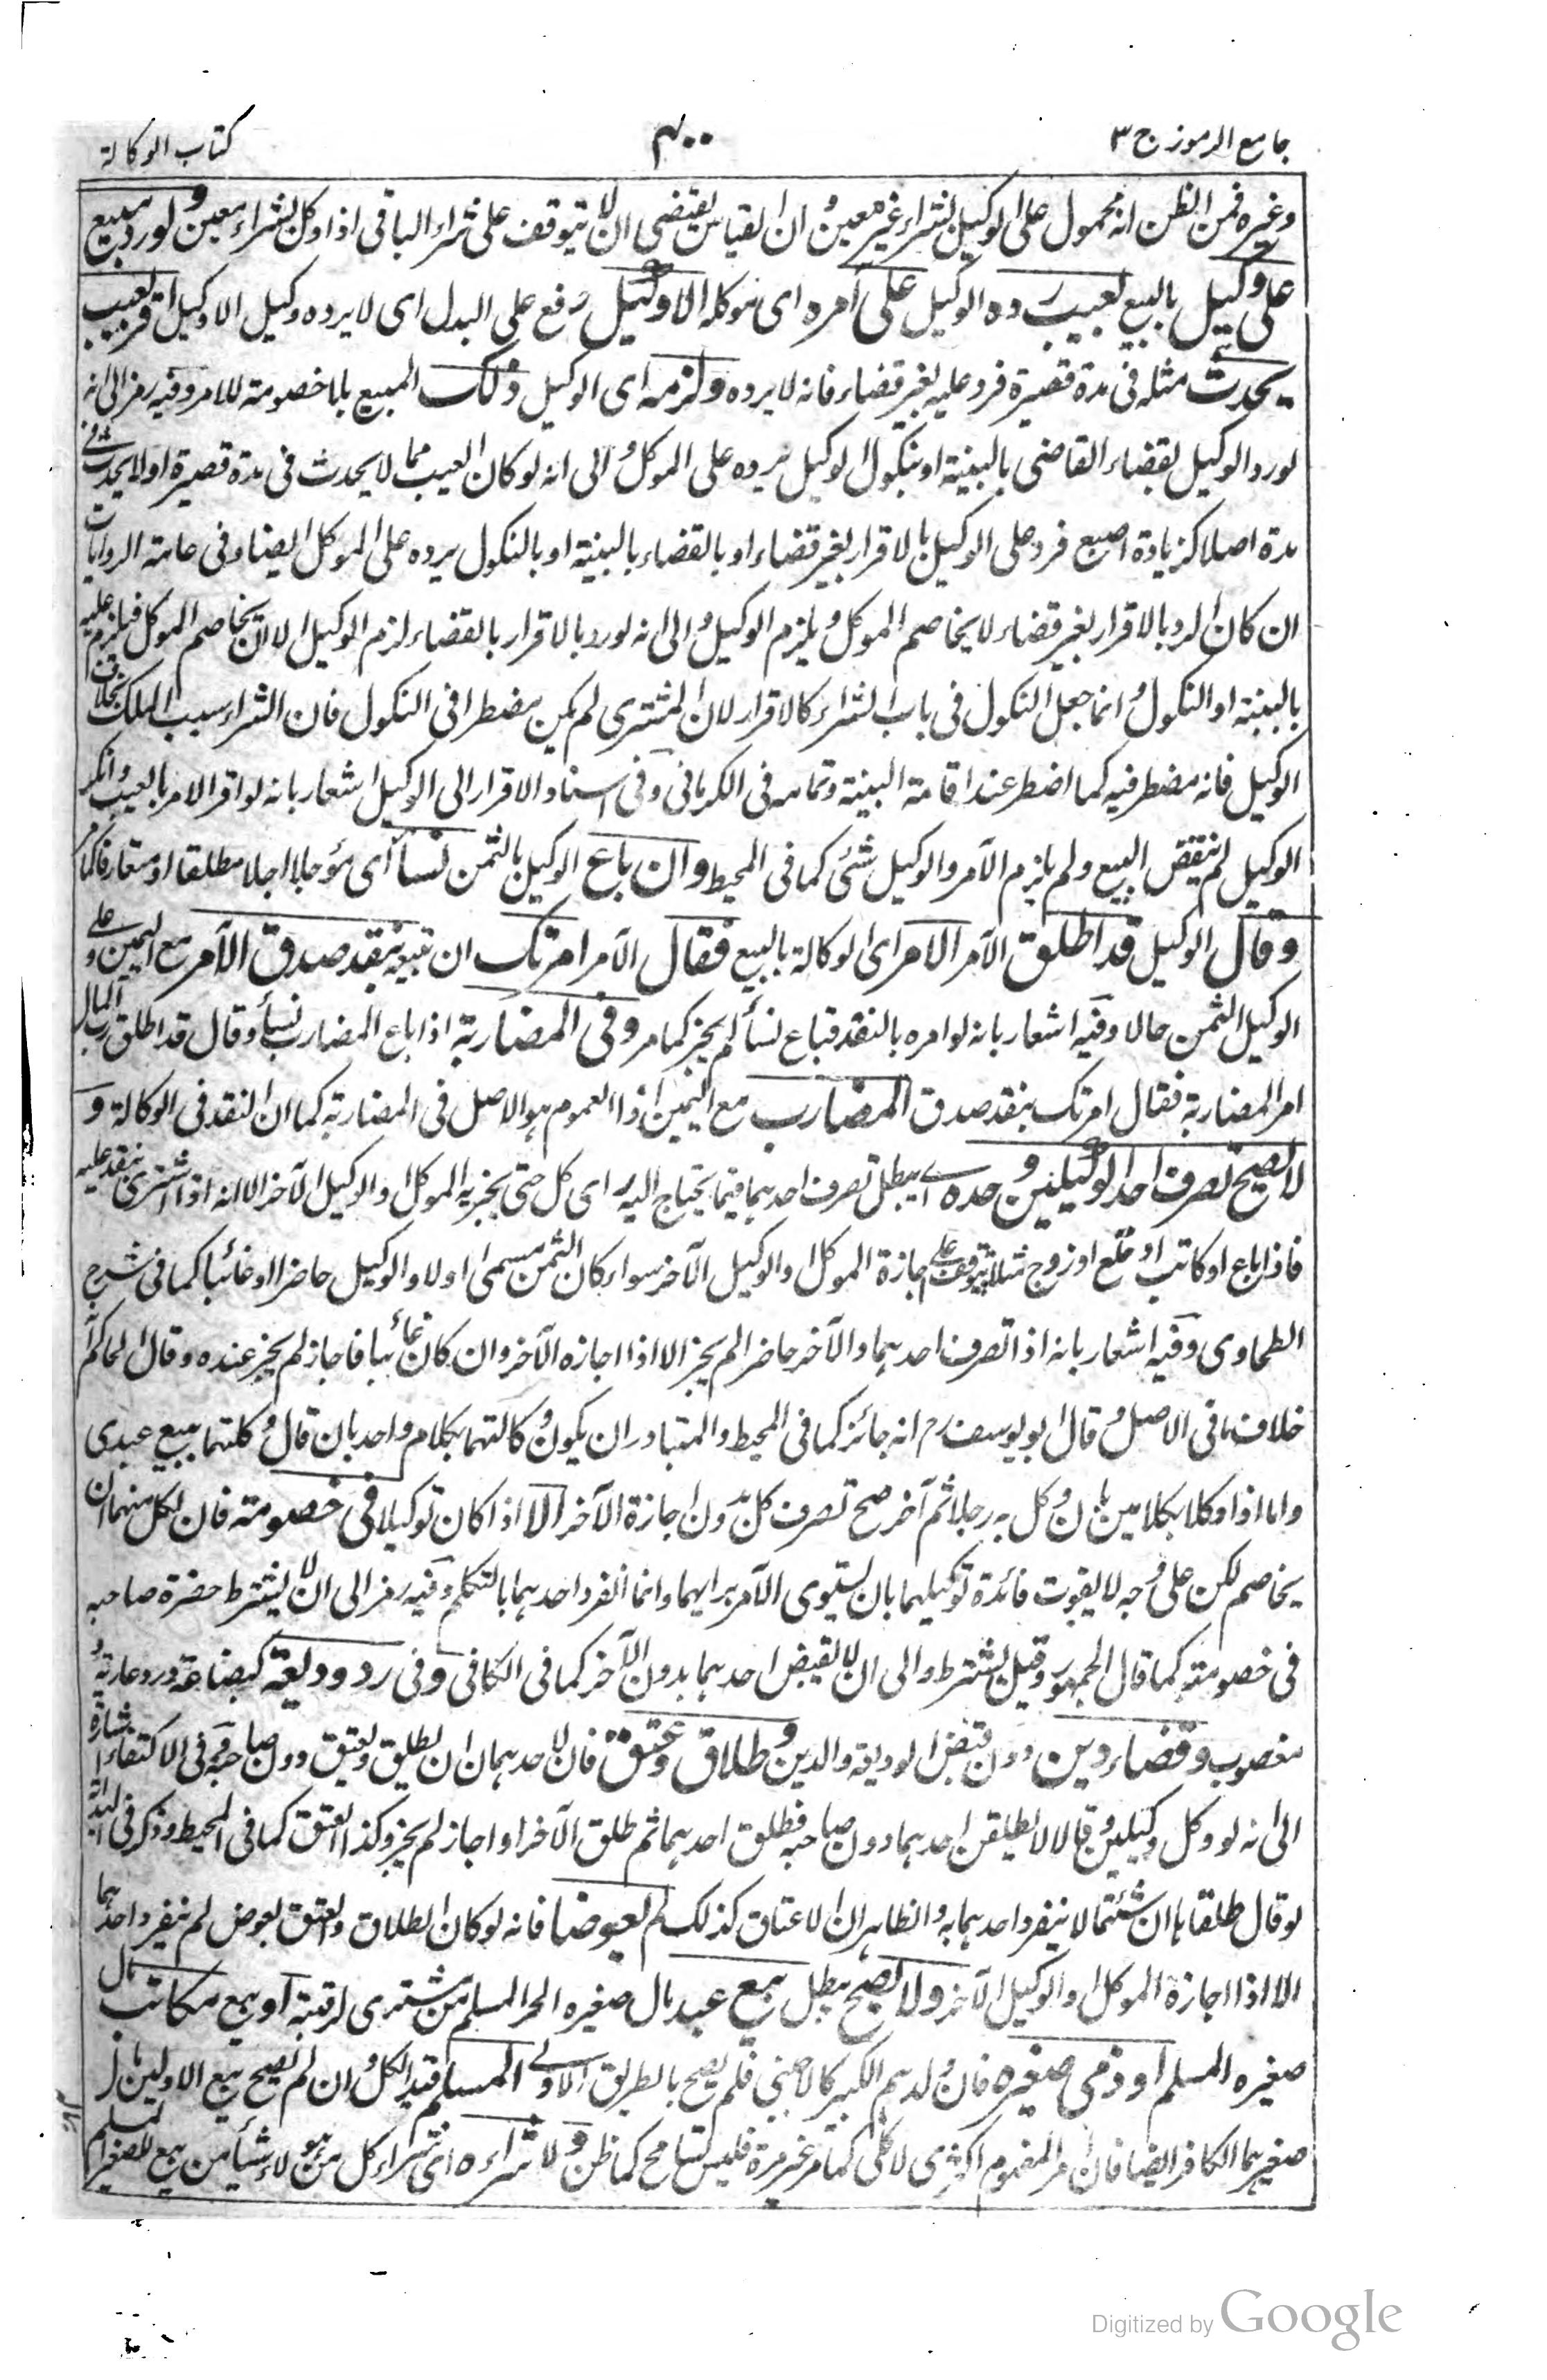 جامع الرموز ج ٣
٤٠٠
كتاب الوكالة
وغيره فمن الظن انه محمول على الوكيل بشراء غير معين و ان القياس يقتضي ان لا يتوقف على شراء الباقي اذا وكل بشراء معين ولو رد مبيع
على وكيل بالبيع بعيب رده الوكيل على آمره اى موكله الا وكيل رفع على البدل اى لا يرده وكيل الا وكيل اقر بعيب
يحدث مثله فى مدة قصيرة فرد عليه بغير قضاء فانه لا يرده ولزمه اى الوكيل ذلك المبيع بلا خصومة للامر وفيه رمز الى انه
لو رد الوكيل بقضاء القاضى بالبينة او بنكول الوكيل يرده على الموكل و الى انه لو كان العيب مما لا يحدث فى مدة قصيرة او لا يحدث فى
مدة اصلا كزيادة اصبع فرد على الوكيل بالاقرار بغير قضاء او بالقضاء بالبينة او بالنكول يرده على الموكل ايضا وفى عامة الروايات
ان كان الرد بالاقرار بغير قضاء لا يخاصم الموكل و يلزم الوكيل و الى انه لو رد بالاقرار بالقضاء لزم الوكيل الا ان يخاصم الموكل فيلزم عليه
بالبينة او النكول و انما جعل النكول فى باب الشراء كالاقرار لان المشترى لم يكن مضطرا فى النكول فان الشراء سبب الملك بخلاف
الوكيل فانه مضطر فيه كما اضطر عند اقامة البينة وتمامه فى الكرمانى وفى اسناد الاقرار الى الوكيل اشعار بانه لو اقر الامر بالعيب وانكر
الوكيل لم ينقض البيع ولم يلزم الآمر والوكيل شئ كما فى المحيط وان باع الوكيل بالثمن نسأ اى مؤجلا اجلا مطلقا او متعارفا كما مر
وقال الوكيل قد اطلق الآمر الامر اى الوكالة بالبيع فقال الآمر امرتك ان تبيعه بنقد صدق الآمر مع اليمين و على
الوكيل الثمن حالا وفيه اشعار بانه لو امره بالنقد فباع نسأ لم يجز كما مر وفى المضاربة اذا باع المضارب نسأ وقال قد اطلق رب المال
امر المضاربة فقال امرتك بنقد صدق المضارب مع اليمين اذ العموم هو الاصل فى المضاربة كما ان النقد فى الوكالة و
لا يصح تصرف احد الوكيلين وحده اى يبطل تصرف احدهما فيما يحتاج اليه راى كل حتى يجيزه الموكل او الوكيل الآخر الا انه اذا اشترى ينفذ عليه
فاذا باع او كاتب او خلع او زوج مثلا يتوقف على اجازة الموكل او الوكيل الآخر سواء كان الثمن مسمى او لا والوكيل حاضرا او غائبا كما فى شرح
الطحاوى وفيه اشعار بانه اذا تصرف احدهما والآخر حاضر لم يجز الا اذا اجازه الآخر وان كان غائبا فاجاز لم يجز عنده وقال الحاكم
خلاف ما فى الاصل و قال ابو يوسف رح انه جائز كما فى المحيط والمتبادر ان يكون وكالتهما بكلام واحد بان قال وكلتكما ببيع عبدى
واما اذا وكلا بكلامين بان وكل به رجلا ثم آخر صح تصرف كل بدون اجازة الآخر الا اذا كان توكيلا فى خصومة فان لكل منهما ان
يخاصم لكن على وجه لا يفوت فائدة توكيلهما بان يستوى الآمر برايهما وانما انفرد احدهما بالتكلم وفيه رمز الى ان لا يشترط حضرة صاحبه
فى خصومته كما قال الجمهور وقيل يشترط والى ان لا يقبض احدهما بدون الآخر كما فى الكافى وفى رد وديعة كبضاعة ورد عارية و
مغصوب وقضاء دين دون قبض الوديعة والدين و طلاق وعتق فان لاحدهما ان يطلق ويعتق دون صاحبه وفى الاكتفاء اشارة
الى انه لو وكل وكيلين و قال لا يطلقن احدهما دون صاحبه فطلق احدهما ثم طلق الآخر او اجاز لم يجز وكذا العتق كما فى المحيط وذكر فى الهداية
لو قال طلقاها ان شئتما لا ينفرد احدهما به والظاهر ان الاعتاق كذلك لم يعوضا فانه لو كان الطلاق والعتق بعوض لم ينفرد احدهما
الا اذا اجازة الموكل او الوكيل الآخر ولا يصح يبطل بيع عبد مال صغيره الحر المسلم من مشترى لرقبته او بيع مكاتب مال
صغيره المسلم او ذمى صغيره فان ولدهم الكبير كالاجنبى فلم يصح بالطريق الاولى المسلم قيد الكل و ان لم يصح بيع الاولين مال
صغيرهما الكافر ايضا فان امر المفهوم اكثرى لا كلى كما مر غير مرة فليس بتسامح كما ظن و لا شراءه اى شراء كل من هؤلاء شيأ من بيع للصغير المسلم
Digitized by Google